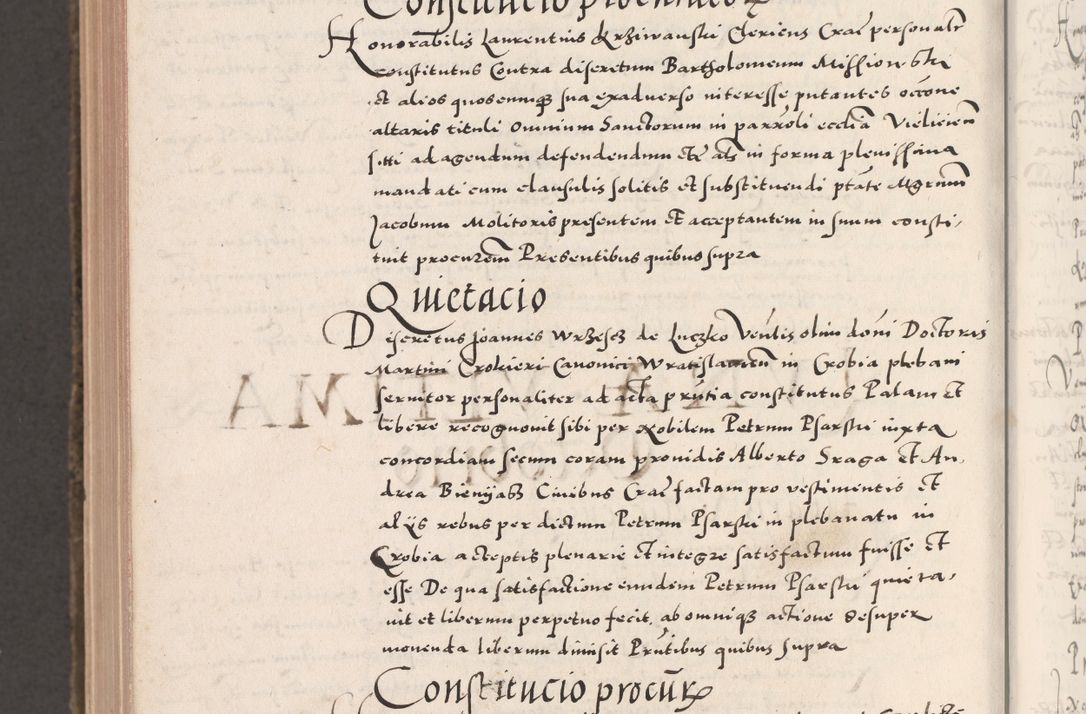 Constitucio procuratorum
Honorabilis Laurentius Krziwanski Clericus Cracẽ personalr̃
constitutus Contra discretum Bartholomeum Mission
et alios quoscunqз sua exadverso interesse putantes occõne
altaris tituli omnium Sanctorum in parrõli ecclĩa Vieliciem̃
sitti ad agendum defendendum etc̃ als̃ in forma plenissima
mandati cum clausulis solitis et substituendi ptãte Mgrum̃
Jacobum Molitoris presentem et acceptantem in suum consti,
tuit procurem̃ Presentibus quibus supra
Quietacio
Discretus Joannes Wrzescz de Luczko Venĩlis olim dõni Doctoris
Martini Crokieri Canonici Wratislavieñ in Crobia plebani
servitor personaliter ad acta prñtia constitutus Palam et
libere recognovit sibi per Nobilem Petrum Psarski iuxta
concordiam secum coram providis Alberto Sraga et An,
drea Bienijass Civibus Craẽ factam pro vestimentis et
alijs rebus per dictum Petrum Psarski in plebanatu in
Crobia acceptis plenarie et integre satisfactum fuisse et
esse De qua satisfactione eundem Petrum Psarski quieta,
vit et liberum perpetuo fecit, ab omniqз actione desuper
movenda liberum dimisit Prñtibus quibus supra
Constitucio procur̃